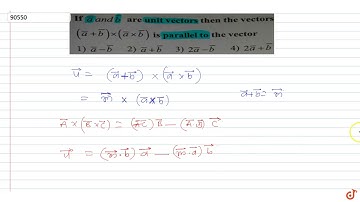 90550
If a⃗ and b⃗ are unit vectors then the vectors
(a⃗+b⃗)×(a⃗×b⃗) is parallel to the vector
1) a⃗−b⃗ 2) a⃗+b⃗ 3) 2a⃗−b⃗ 4) 2a⃗+b⃗
u⃗ = (a⃗+b⃗) × (a⃗×b⃗)
= m⃗ × (a⃗×b⃗) a+b = m⃗
A⃗×(B⃗×C⃗) = (A⃗C⃗)B⃗ — (A⃗.B⃗) C⃗
u⃗ = (m⃗.b⃗) a⃗ — (m⃗.a⃗) b⃗